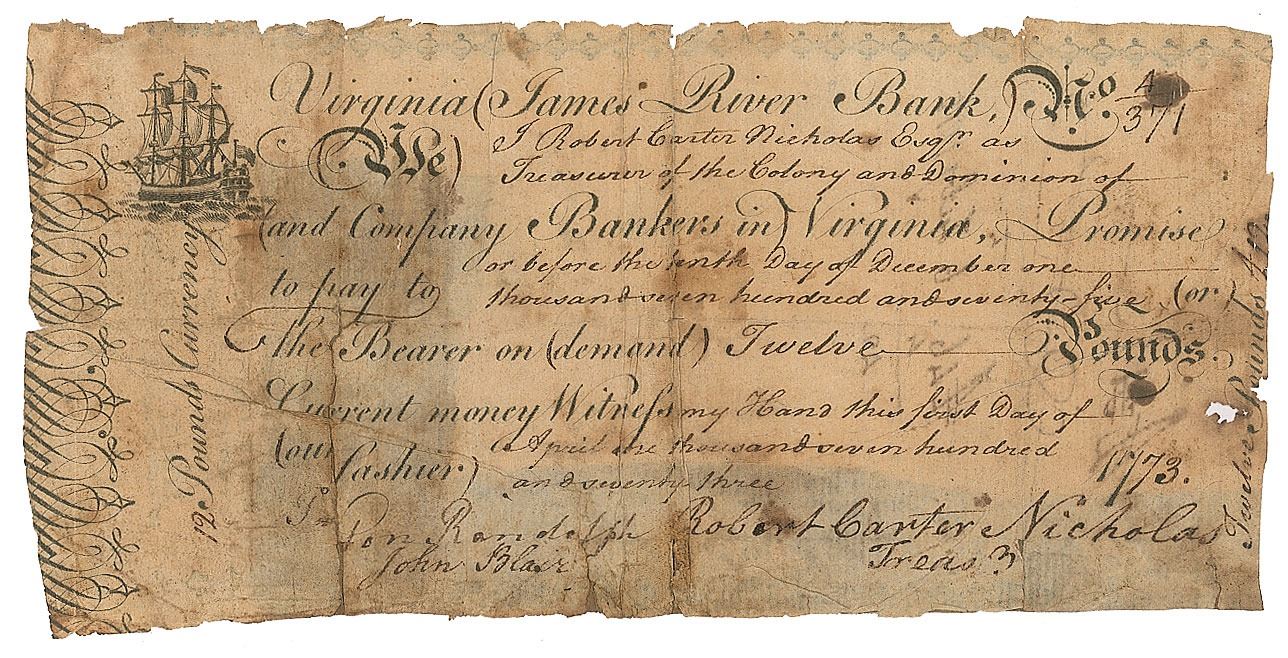 Virginia (James River Bank,) No.
371
(We) I Robert Carter Nicholas Esqr. as
Treasurer of the Colony and Dominion of
(and Company Bankers in) Virginia, Promise
or before the tenth Day of December one
to pay to) thousand seven hundred and seventy-five (or)
the Bearer on (demand) Twelve Pounds.
Current money Witness my Hand this first Day of
(our Cashier) April one thousand seven hundred
and seventy three 1773.
Robert Carter Nicholas
Pen Randolph
John Blair Treas
£12 Pounds Currency
Twelve Pounds